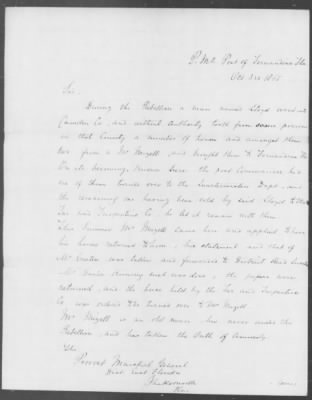 P.M.O. Post of Fernandina Fla
Oct 3rd 1865
Sir.
During the Rebellion a man named Lloyd went into
Camden Co, and without Authority took from some persons
in that County a number of horses and amongst them
two from a Mr Mizell, and brought them to Fernandina Fla
On its becoming known here the post Commander had
six of them turned over to the Quartermaster Dept, and
the remaining one having been sold by said Lloyd to the
Tar and Turpentine Co, he let it remain with them.
This Summer Mr Mizell came here and applied to have
his horses returned to him, his statement and that of
Mr was taken and forwarded to District Head
Mr owning said was does, the papers were
returned, and the horse held by the Tar and Turpentine
Co was ordered to be turned over to Mr Mizell.
Mr Mizell is an old man, has never under the
Rebellion, and has taken the Oath of Amnesty.
The
Provost Marshal General
Dist East Florida
Jacksonville
Fla.